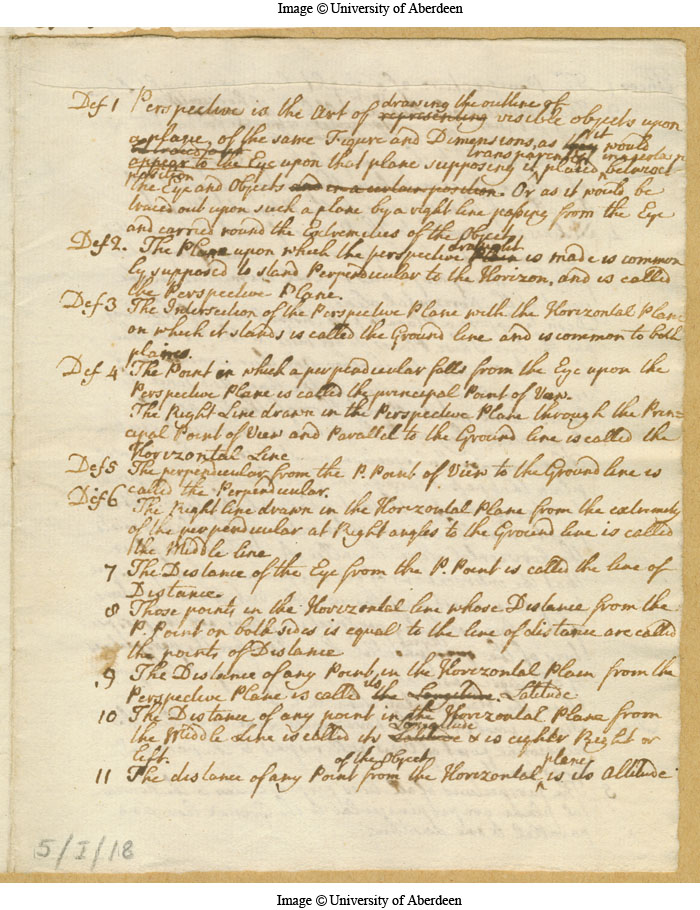 Image © University of Aberdeen
Def 1 Perspective is the Art of representing drawing the outline of visible objects upon
a plane of the same Figure and Dimensions, as they it would
appear to the Eye upon that plane supposing it transparent & placed in a certain position between
the Eye and Objects and in a certain position. Or as it would be
traced out upon such a plane by a right line passing from the Eye
and carried round the Extremeties of the Object
Def 2. The Plane upon which the perspective Plain draught is made is common
ly supposed to stand Perpendicular to the Horizon, and is called
the Perspective Plane.
Def 3 The Intersection of the Perspective Plane with the Horizontal Plane
on which it stands is called the Ground line and is common to both
planes.
Def 4 The Point in which a perpendicular falls from the Eye upon the
Perspective Plane is called the principal Point of View.
The Right Line drawn in the Perspective Plane through the Prin-
cipal Point of View and Parallel to the Ground line is called the
Horizontal Line
Def 5 The perpendicular from the P. Point of View to the Ground line is
called the Perpendicular.
Def 6 The Right line drawn in the Horizontal Plane from the extremety
of the perpendicular at Right angles to the Ground line is called
the Middle line
7 The Distance of the Eye from the P. Point is called the line of
Distance.
8 Those points in the Horizontal line whose Distance from the
P. Point on both sides is equal to the line of distance are called
the points of Distance
9 The Distance of any Point in the Horizontal Plain from the
Perspective Plane is called its the Longitude. Latitude
10 The Distance of any point in the Horizontal Plane from
the Middle Line is called its Latitude Longitude & is eighter Right or
left.
11 The distance of any Point of the Object from the Horizontal plane is its Altitude
5/I/18
Image © University of Aberdeen